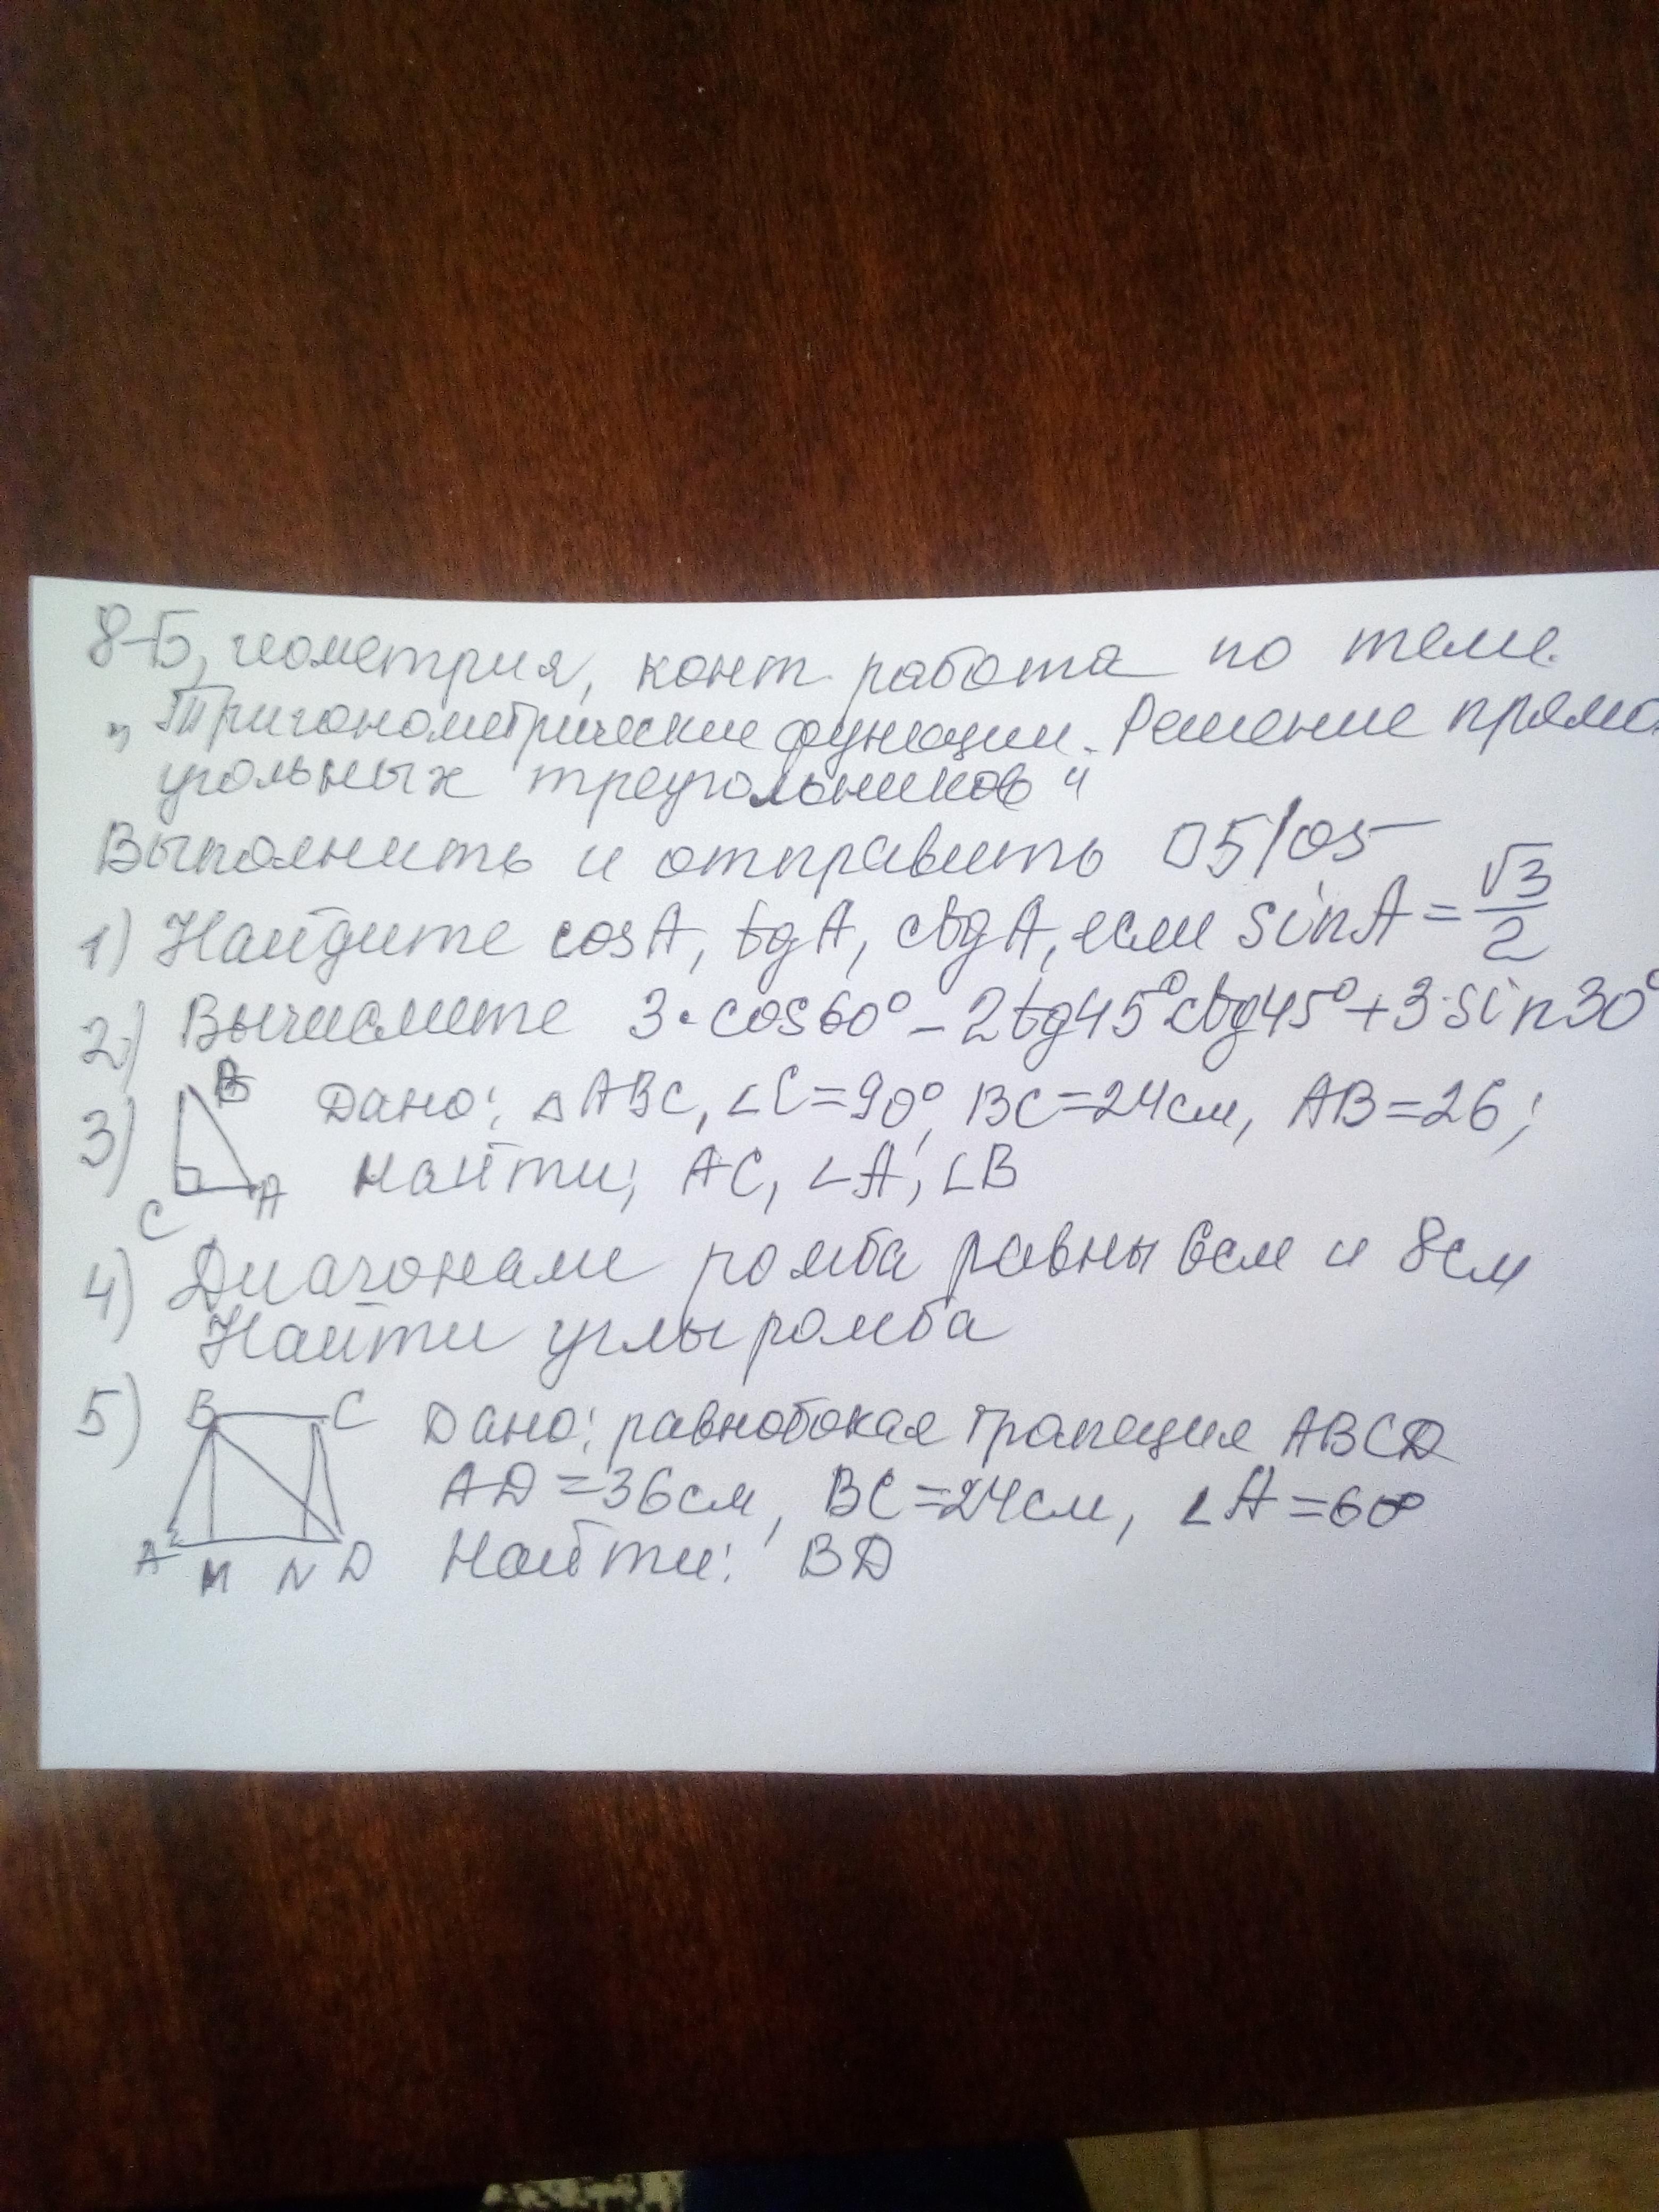 8-Б, геометрия, конт. работа по теме.
„Тригонометрические функции. Решение прямо
угольных треугольников"
Выполнить и отправить 05/05
1) Найдите cosA, tgA, ctgA, если sinA = √3/2
2) Вычислите 3·cos60° - 2tg45°ctg45° + 3·sin30°
3) B C A Дано: △ABC, ∠C=90°, BC=24см, AB=26;
Найти; AC, ∠A, ∠B
4) Диагонали ромба равны 6см и 8см
Найти углы ромба
5) B C Дано: равнобокая трапеция ABCD
AD=36см, BC=24см, ∠A=60°
A M N D Найти: BD